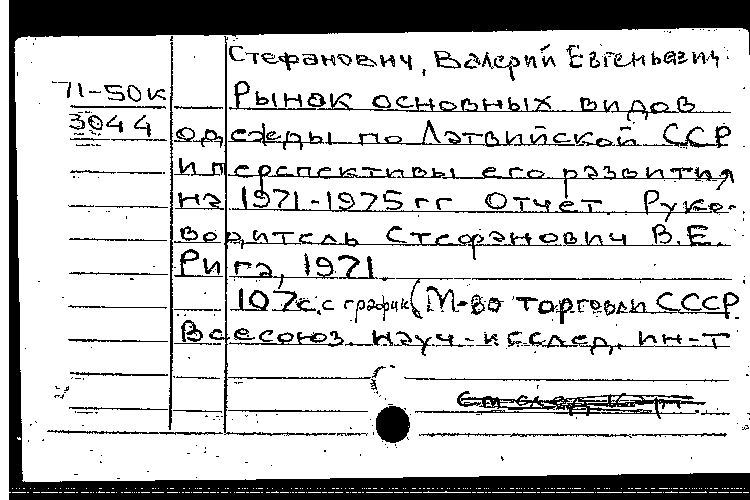 Стефанович, Валерий Евгеньевич.
71-50к Рынок основных видов
3044 одежды по Латвийской ССР
и перспективы его развития
на 1971-1975 гг Отчет. Руко-
водитель Стефанович В.Е.
Рига, 1971.
107с. с график (М-во торговли СССР.
Всесоюз. науч.-исслед. ин-т
См след карт.